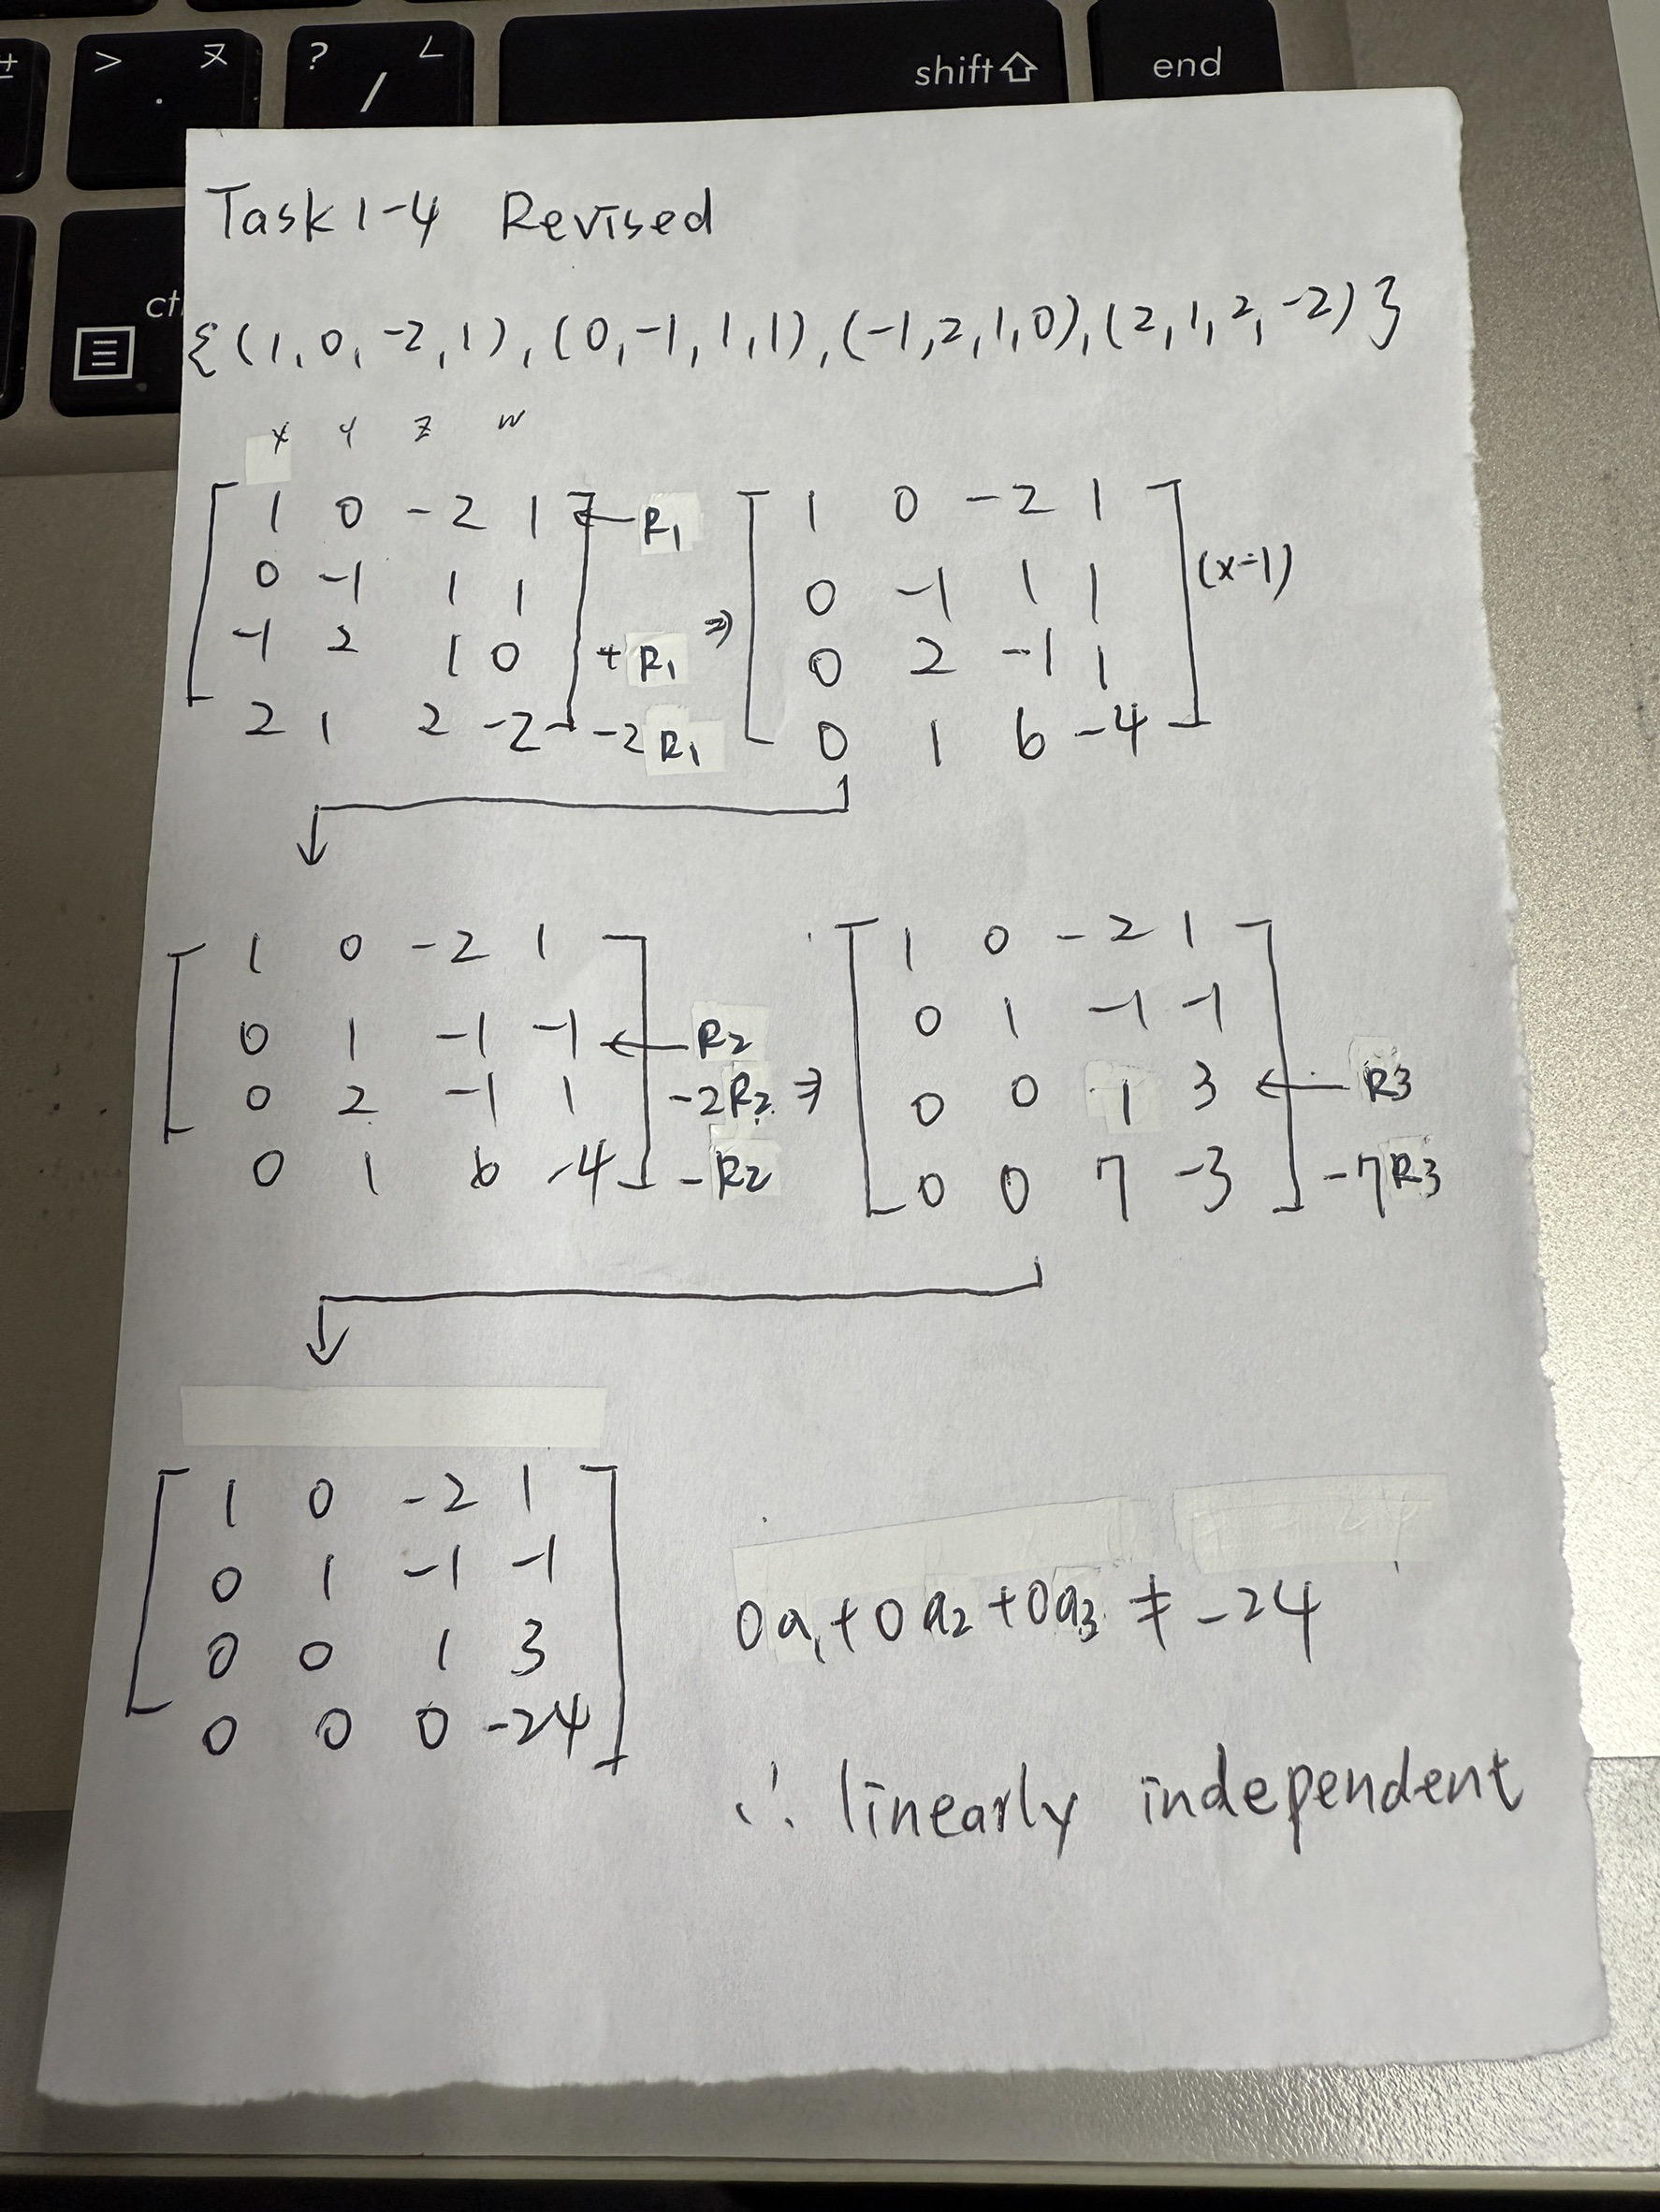 > ㄡ .
? ㄥ /
shift
end
Task 1-4 Revised
{(1, 0, -2, 1), (0, -1, 1, 1), (-1, 2, 1, 0), (2, 1, 2, -2)}
x y z w
1 0 -2 1 ← R1
0 -1 1 1
-1 2 1 0 + R1
2 1 2 -2 -2R1
⇒
1 0 -2 1
0 -1 1 1 (x-1)
0 2 -1 1
0 1 6 -4
1 0 -2 1
0 1 -1 -1 ← R2
0 2 -1 1 -2R2
0 1 6 -4 -R2
⇒
1 0 -2 1
0 1 -1 -1
0 0 1 3 ← R3
0 0 7 -3 -7R3
1 0 -2 1
0 1 -1 -1
0 0 1 3
0 0 0 -24
0a1 + 0a2 + 0a3 ≠ -24
∴ linearly independent